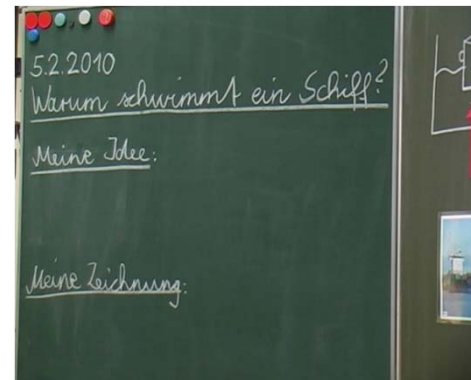 5.2.2010
Warum schwimmt ein Schiff?
Meine Idee:
Meine Zeichnung: